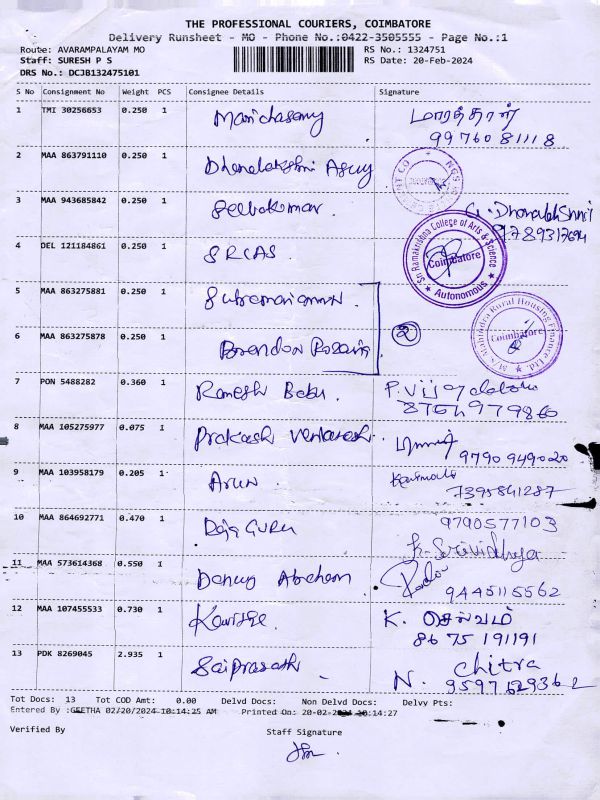 THE PROFESSIONAL COURIERS, COIMBATORE
Delivery Runsheet - MO - Phone No.:0422-3505555 - Page No.:1
Route: AVARAMPALAYAM MO RS No.: 1324751
Staff: SURESH P S RS Date: 20-Feb-2024
DRS No.: DCJB132475101
S No Consignment No Weight PCS Consignee Details Signature
1 TMI 30256653 0.250 1 Marichasamy மாரத்தாள்
99760 81118
2 MAA 863791110 0.250 1 Dhanalakshmi
3 MAA 943685842 0.250 1 Selvakumar. G. Dhanalakshmi
9789317694
Sri Ramakrishna College of Arts & Science
Coimbatore
★ Autonomous ★
4 DEL 121184861 0.250 1 SRCAS
5 MAA 863275881 0.250 1
M/s Mahindra Rural Housing Finance Ltd.
Coimbatore
6 MAA 863275878 0.250 1 Brendon ②
7 PON 5488282 0.360 1 Ramesh Babu.
8 MAA 105275977 0.075 1 Prakash Venkatesh.
9790949020
9 MAA 103958179 0.205 1 Arun
7395841287
10 MAA 864692771 0.470 1 Raja GURU 9790577103
K. Srividhya
11 MAA 573614368 0.550 1 Abraham
9445115562
12 MAA 107455533 0.730 1 K. செல்வம்
8675 191191
13 PDK 8269045 2.935 1 Saiprasath N. Chitra
9597629362
Tot Docs: 13 Tot COD Amt: 0.00 Delvd Docs: Non Delvd Docs: Delvy Pts:
Entered By :GEETHA 02/20/2024 10:14:25 AM Printed On: 20-02-2024 10:14:27
Verified By Staff Signature